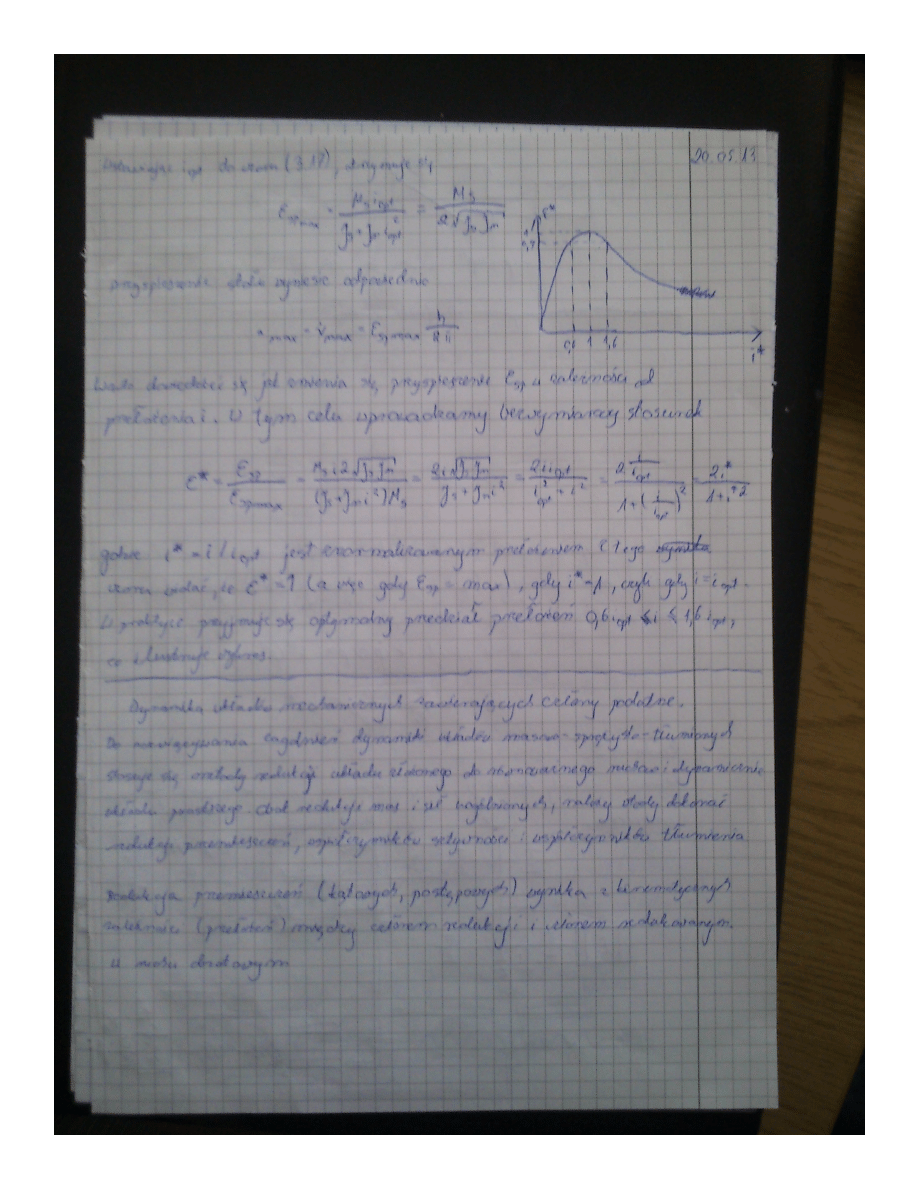 20.05.13
Wstawiając i_opt do wzoru (3.17), otrzymuje się
ε_sp max = M_s i_opt / (J_s + J_m i²_opt) = M_s / (2√(J_s J_m))
ε*
1
0,6 1 1,6
i*
przyspieszenie stołu wyniesie odpowiednio
a_max = v̇_max = ε_sp max h / 2π
się jak zmienia się przyspieszenie ε_sp w zależności od
przełożenia i. W tym celu wprowadzamy bezwymiarowy stosunek
ε* = ε_sp / ε_sp max = M_s i 2√(J_s J_m) / ((J_s + J_m i²) M_s) = 2i√(J_s J_m) / (J_s + J_m i²) = 2 i i_opt / (i²_opt + i²) = 2 (i / i_opt) / (1 + (i / i_opt)²) = 2i* / (1 + i*²)
gdzie i* = i / i_opt jest znormalizowanym przełożeniem. Z tego
wzoru widać, że ε* = 1 (a więc gdy ε_sp = max), gdy i* = 1, czyli gdy i = i_opt.
W praktyce przyjmuje się optymalny przedział przełożeń 0,6 i_opt ≤ i ≤ 1,6 i_opt,
co ilustruje wykres.
Dynamika układów mechanicznych zawierających człony podatne.
Do rozwiązywania zagadnień dynamiki układów masowo-sprężysto-tłumionych
stosuje się metody redukcji układu złożonego do równoważnego dynamicznie
układu prostszego. redukcji mas i sił uogólnionych, należy wtedy dokonać
redukcji przemieszczeń, współczynników sztywności i współczynników tłumienia
Redukcja przemieszczeń (kątowych, postępowych) wynika z kinematycznych
zależności (przełożeń) między członem redukcji i członem redukowanym.
W ruchu obrotowym